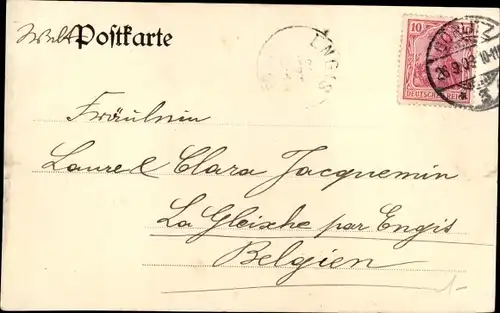 Welt Postkarte
ENGIS
10
DEUTSCHES REICH
26.9.03. 10-11
Fräulein
Laure & Clara Jacquemin
La Gleixhe par Engis
Belgien